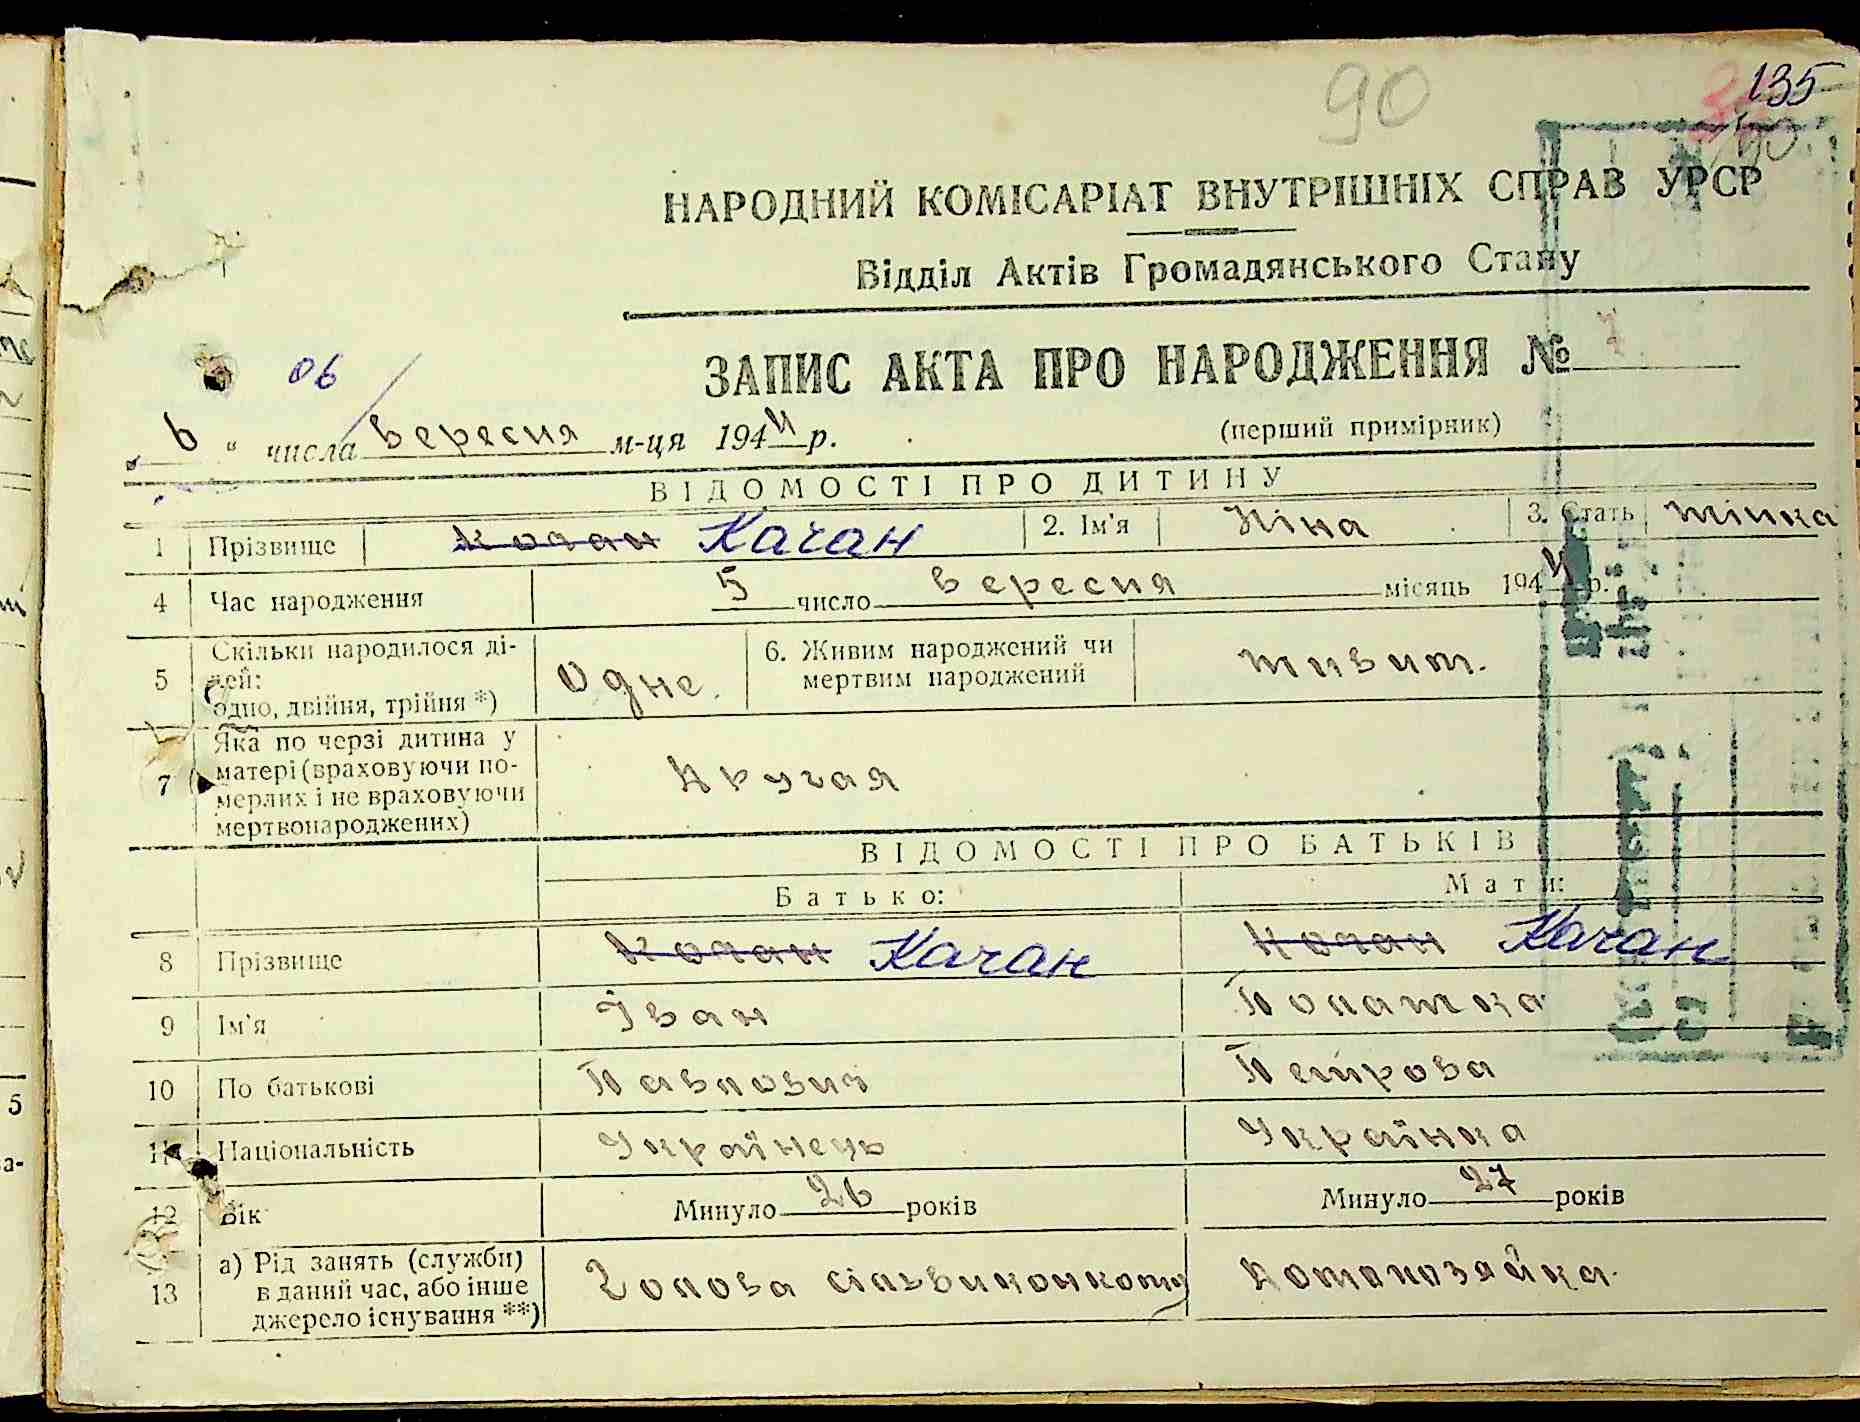 90
135
НАРОДНИЙ КОМІСАРІАТ ВНУТРІШНІХ СПРАВ УРСР
Відділ Актів Громадянського Стану
ЗАПИС АКТА ПРО НАРОДЖЕННЯ № 7
06
„ 6 “ числа вересня м-ця 1944 р. (перший примірник)
ВІДОМОСТІ ПРО ДИТИНУ
1 Прізвище Кочан Качан 2. Ім'я Ніна 3. Стать жінка
4 Час народження 5 число вересня місяць 1944 р.
5 Скільки народилося ді-
тей:
одно, двійня, трійня *) Одне. 6. Живим народжений чи
мертвим народжений живит.
7 Яка по черзі дитина у
матері (враховуючи по-
мерлих і не враховуючи
мертвонароджених) Другая
ВІДОМОСТІ ПРО БАТЬКІВ
Батько: Мати:
8 Прізвище Кочан Качан Кочан Качан
9 Ім'я Іван
10 По батькові Павлович Петрова
11 Національність Українець Українка
12 Вік Минуло 26 років Минуло 27 років
13 а) Рід занять (служби)
в даний час, або інше
джерело існування **) Голова сільвиконкому Домохозяйка